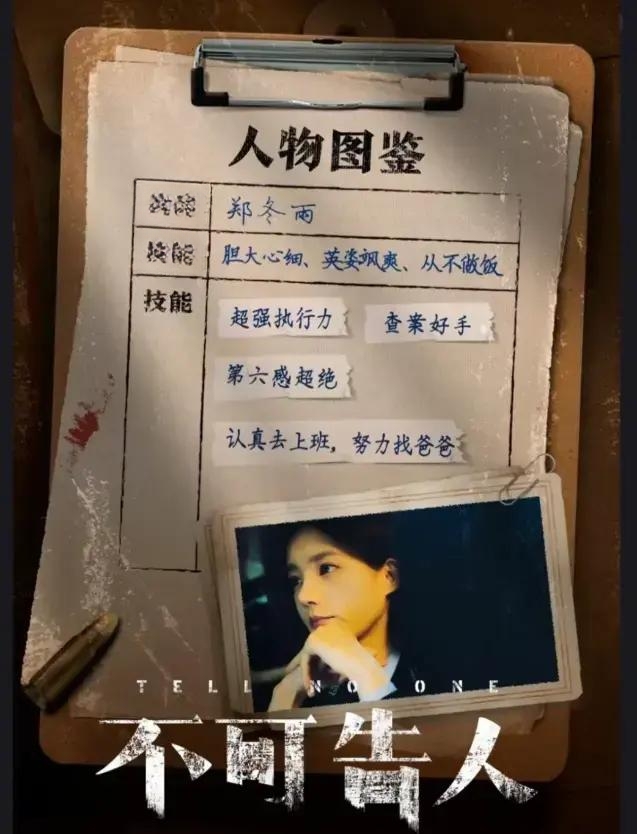 人物图鉴
郑冬雨
技能 胆大心细、英姿飒爽、从不做饭
技能 超强执行力 查案好手
第六感超绝
认真去上班，努力找爸爸
TELL NO ONE
不可告人